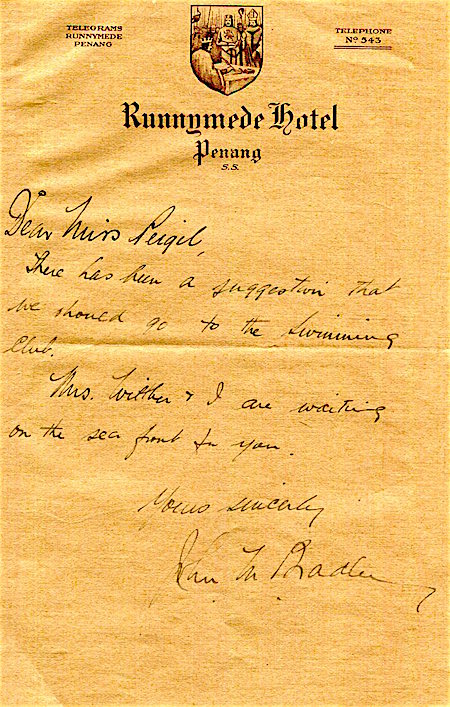 TELEGRAMS
RUNNYMEDE
PENANG
TELEPHONE
Nº 543
Runnymede Hotel
Penang
S.S.
Dear Miss
There has been a suggestion that
we should go to the swimming
Club.
Mrs. & I are waiting
on the sea front for you.
Yours sincerely
John M Bradley